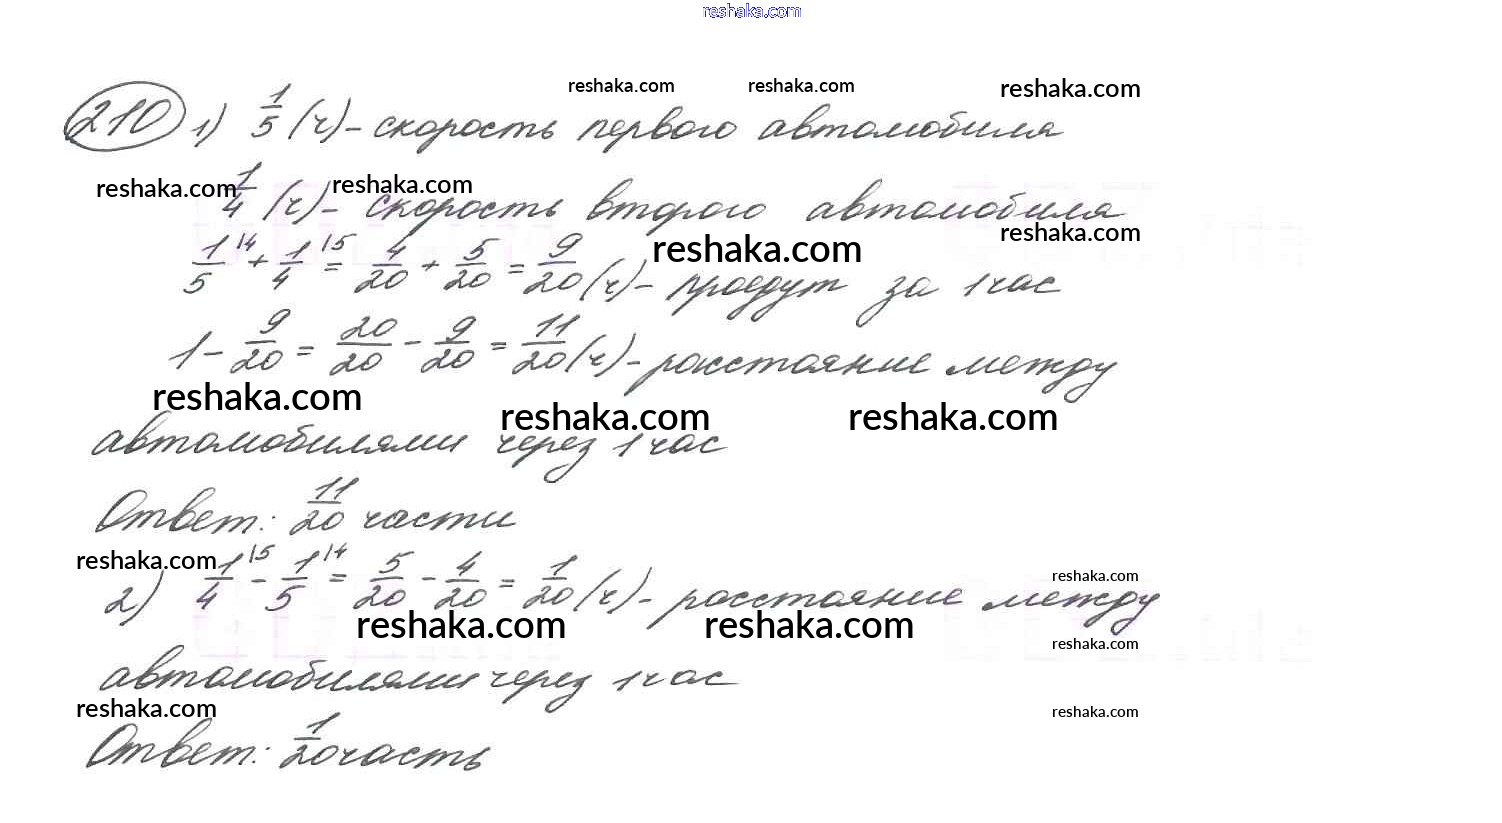 reshaka.com
reshaka.com reshaka.com reshaka.com
210 1) 1/5 (ч) - скорость первого автомобиля
reshaka.com reshaka.com
1/4 (ч) - скорость второго автомобиля
reshaka.com
1/5 \4 + 1/4 \5 = 4/20 + 5/20 = 9/20 (ч) - проедут за 1 час
reshaka.com
1 - 9/20 = 20/20 - 9/20 = 11/20 (ч) - расстояние между
reshaka.com reshaka.com reshaka.com
автомобилями через 1 час
Ответ: 11/20 части
reshaka.com reshaka.com
2) 1/4 \5 - 1/5 \4 = 5/20 - 4/20 = 1/20 (ч) - расстояние между
reshaka.com reshaka.com reshaka.com
автомобилями через 1 час
reshaka.com reshaka.com
Ответ: 1/20 часть